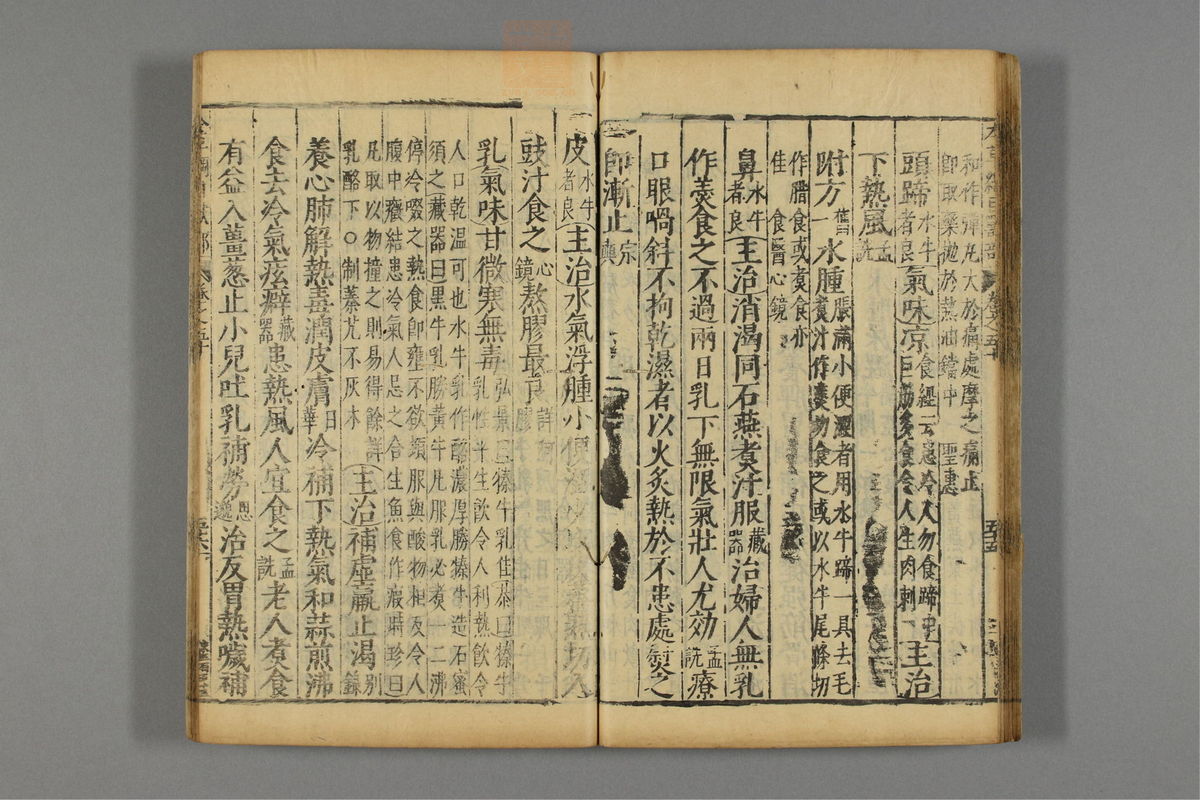 和作彈丸大於痛處摩之痛止
卽取藥拋於熱油鐺中 聖惠
頭蹄水牛者良氣味凉食經云患冷人勿食蹄中巨筋多食令人生肉刺主治
下熱風孟詵
附方舊一水腫脹滿小便澀者用水牛蹄一具去毛煮汁作羹切食之或以水牛尾條切
作腊食或煮食亦佳 食醫心鏡
鼻水牛者良主治消渴同石燕煮汁服藏器治婦人無乳
作羹食之不過兩日乳下無限氣壯人尤効孟詵療
口眼喎斜不拘乾濕者以火炙熱於不患處熨之
卽漸止宗奭
皮水牛者良主治水氣浮腫小便
豉汁食之心鏡熬膠最良詳
乳氣味甘微寒無毒弘景曰犢牛乳佳恭曰犢牛乳性平生飲令人利熱飲令
人口乾溫可也水牛乳作酪濃厚勝犢牛造石蜜
須之藏器曰黑牛乳勝黃牛凡服乳必煮一二沸
停冷啜之熱食卽壅不欲頓服與酸物相反令人
腹中癥結患冷氣人忌之合生魚食作瘕時珍曰
凡取以物撞之則易得餘詳乳酪下○制秦艽不灰木
主治補虛羸止渴別錄
養心肺解熱毒潤皮膚日華冷補下熱氣和蒜煎沸
食去冷氣痃癖藏器患熱風人宜食之孟詵老人煮食
有益入薑葱止小兒吐乳補勞思邈治反胃熱噦補